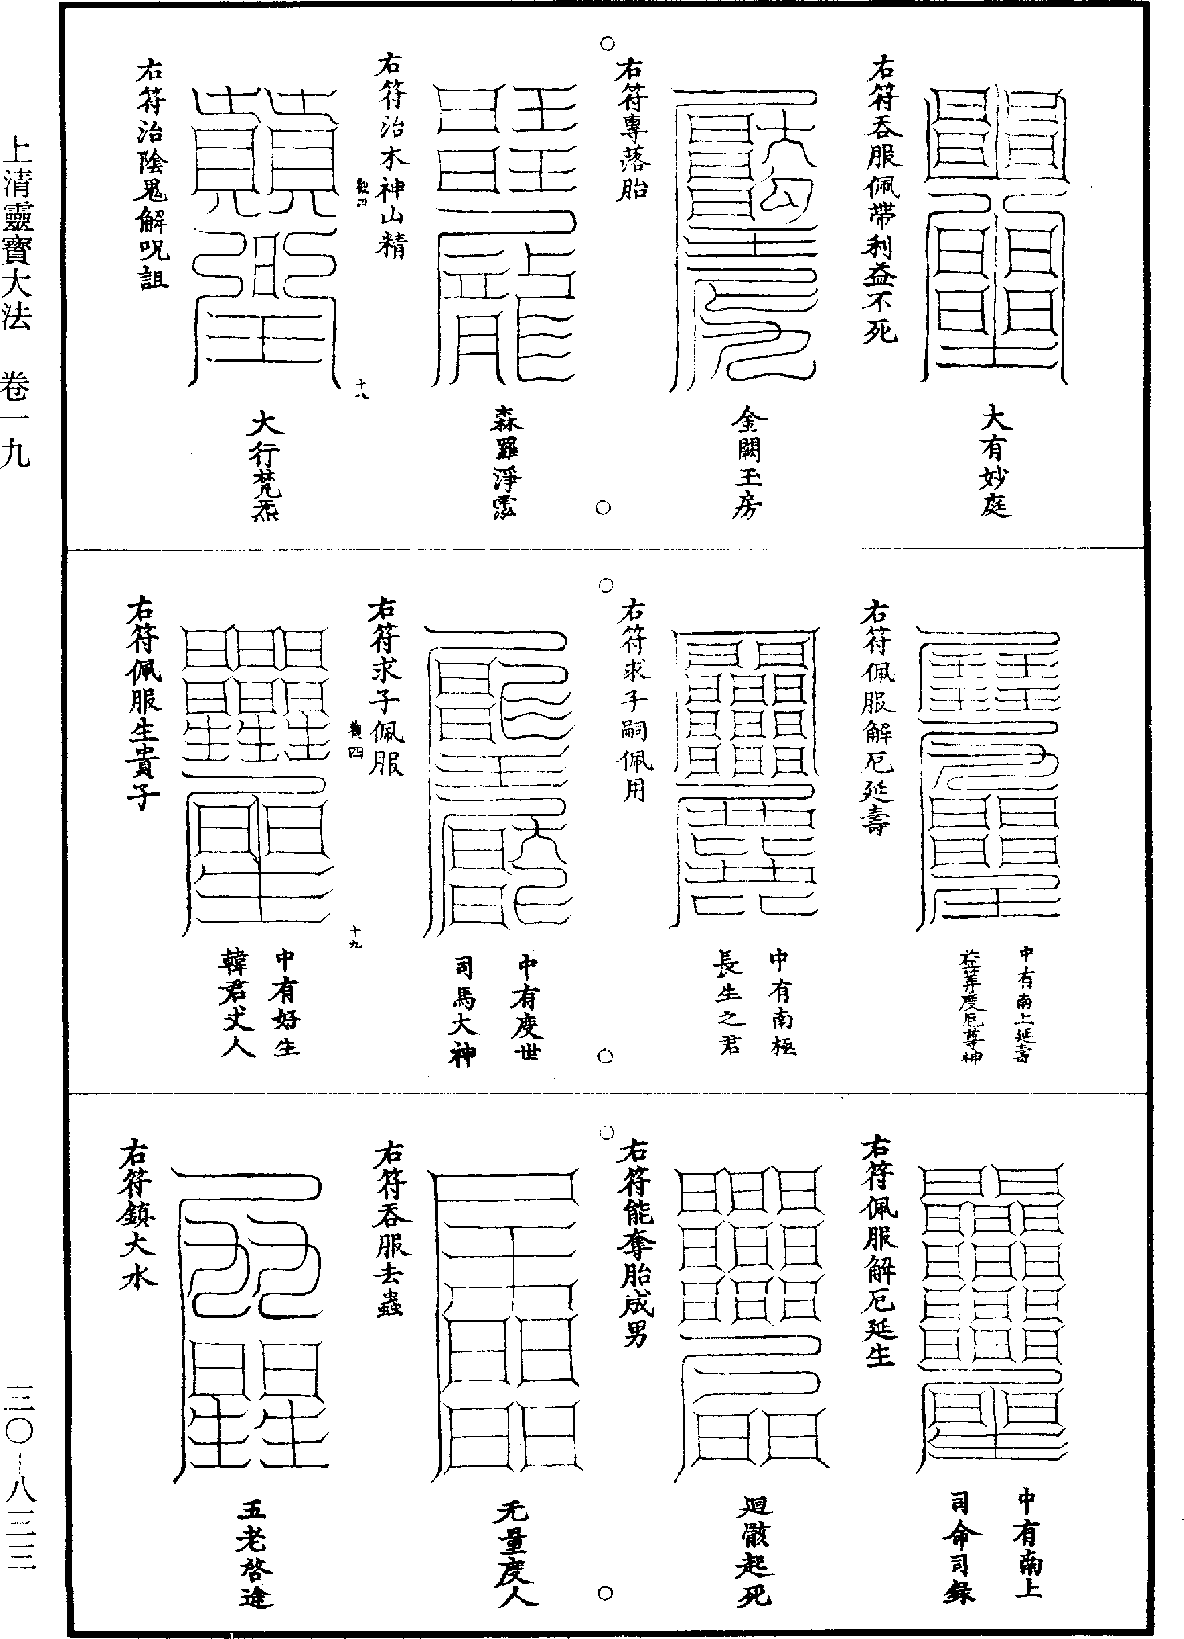 大有妙庭
右符吞服佩帶利益不死
金闕玉房
右符專落胎
森羅淨霐
右符治木神山精
十八
大行梵炁
右符治陰鬼解呪詛
中有南上延壽
益筭度厄尊神
右符佩服解厄延壽
中有南極
長生之君
右符求子嗣佩用
中有度世
司馬大神
右符求子佩服
十九
中有好生
韓君丈人
右符佩服生貴子
中有南上
司命司錄
右符佩服解厄延生
迴骸起死
右符能奪胎成男
无量度人
右符吞服去蟲
五老啓途
右符鎮大水
上清靈寶大法 卷一九
三〇—八三三